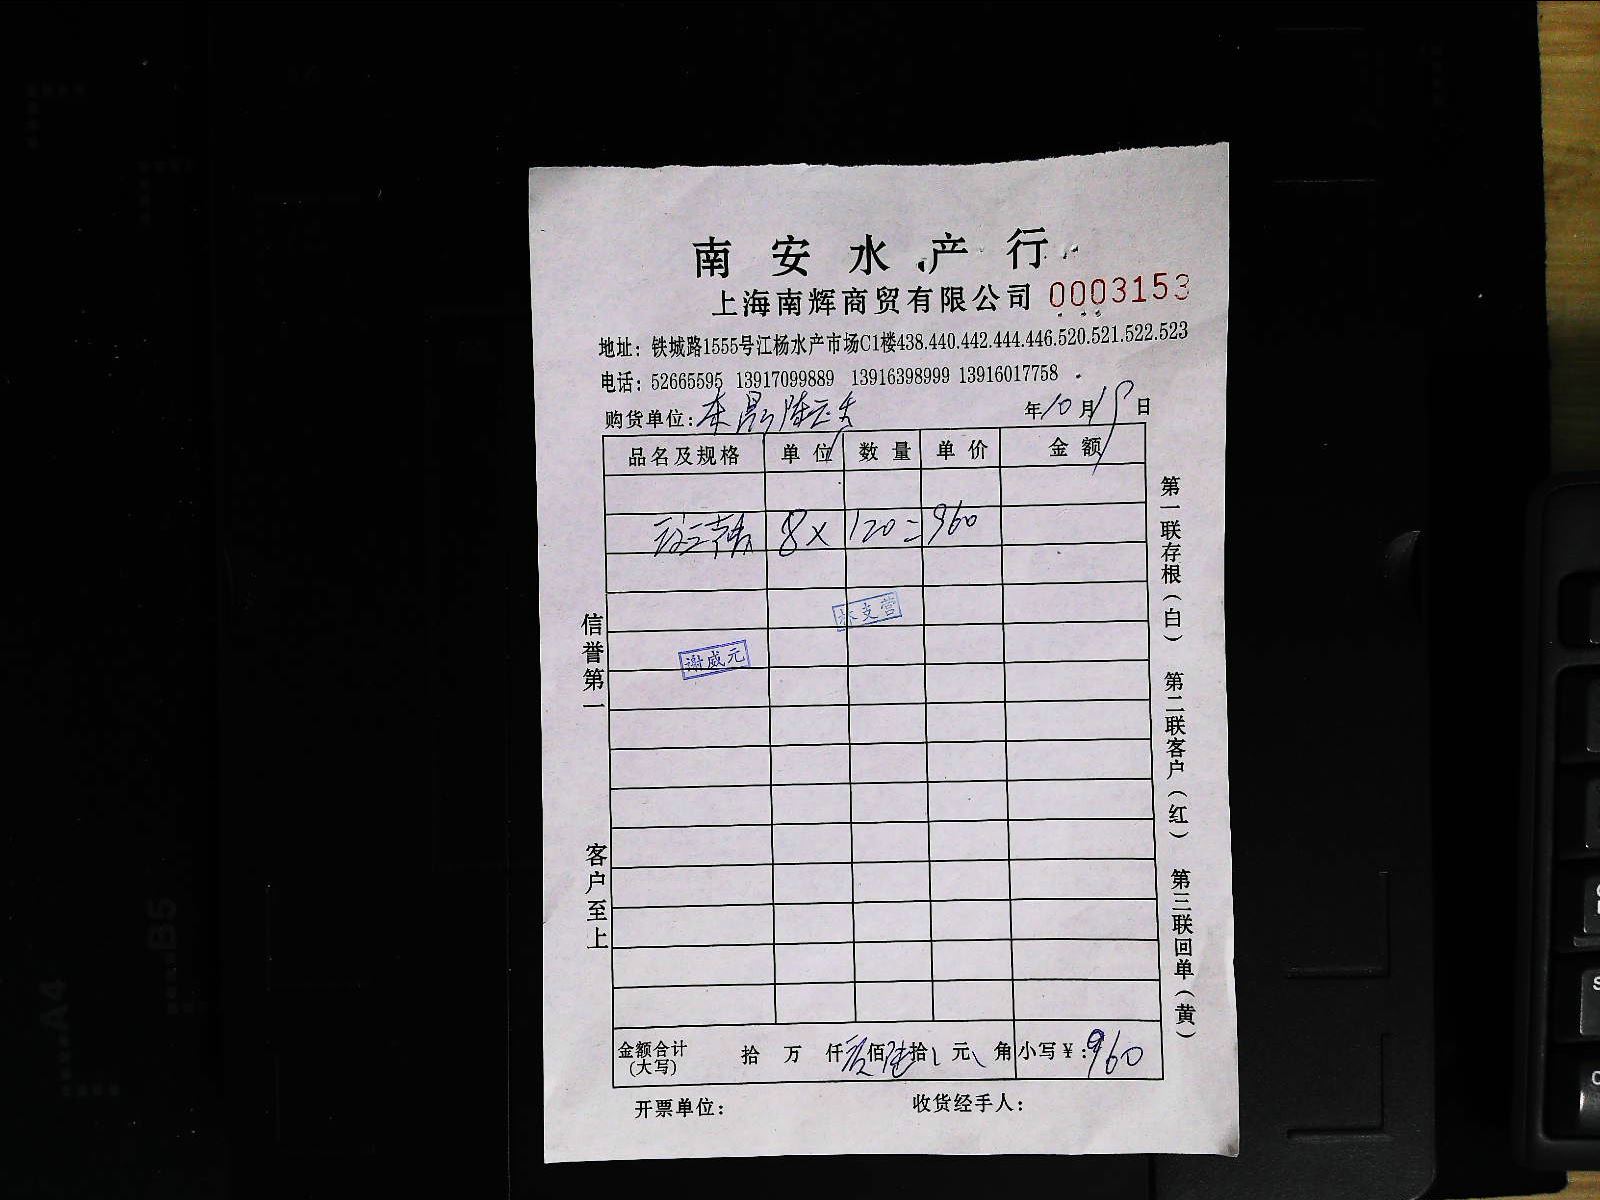 南安水产行
上海南辉商贸有限公司 0003153
地址：铁城路1555号江杨水产市场C1楼438.440.442.444.446.520.521.522.523
电话：52665595 13917099889 13916398999 13916017758
购货单位： 年10月 日
品名及规格 单位 数量 单价 金额
8×120=960
谢威元
信誉第一
客户至上
第一联存根（白） 第二联客户（红） 第三联回单（黄）
金额合计（大写） 拾 万 仟 佰陆拾 元 角 小写￥：960
开票单位： 收货经手人：